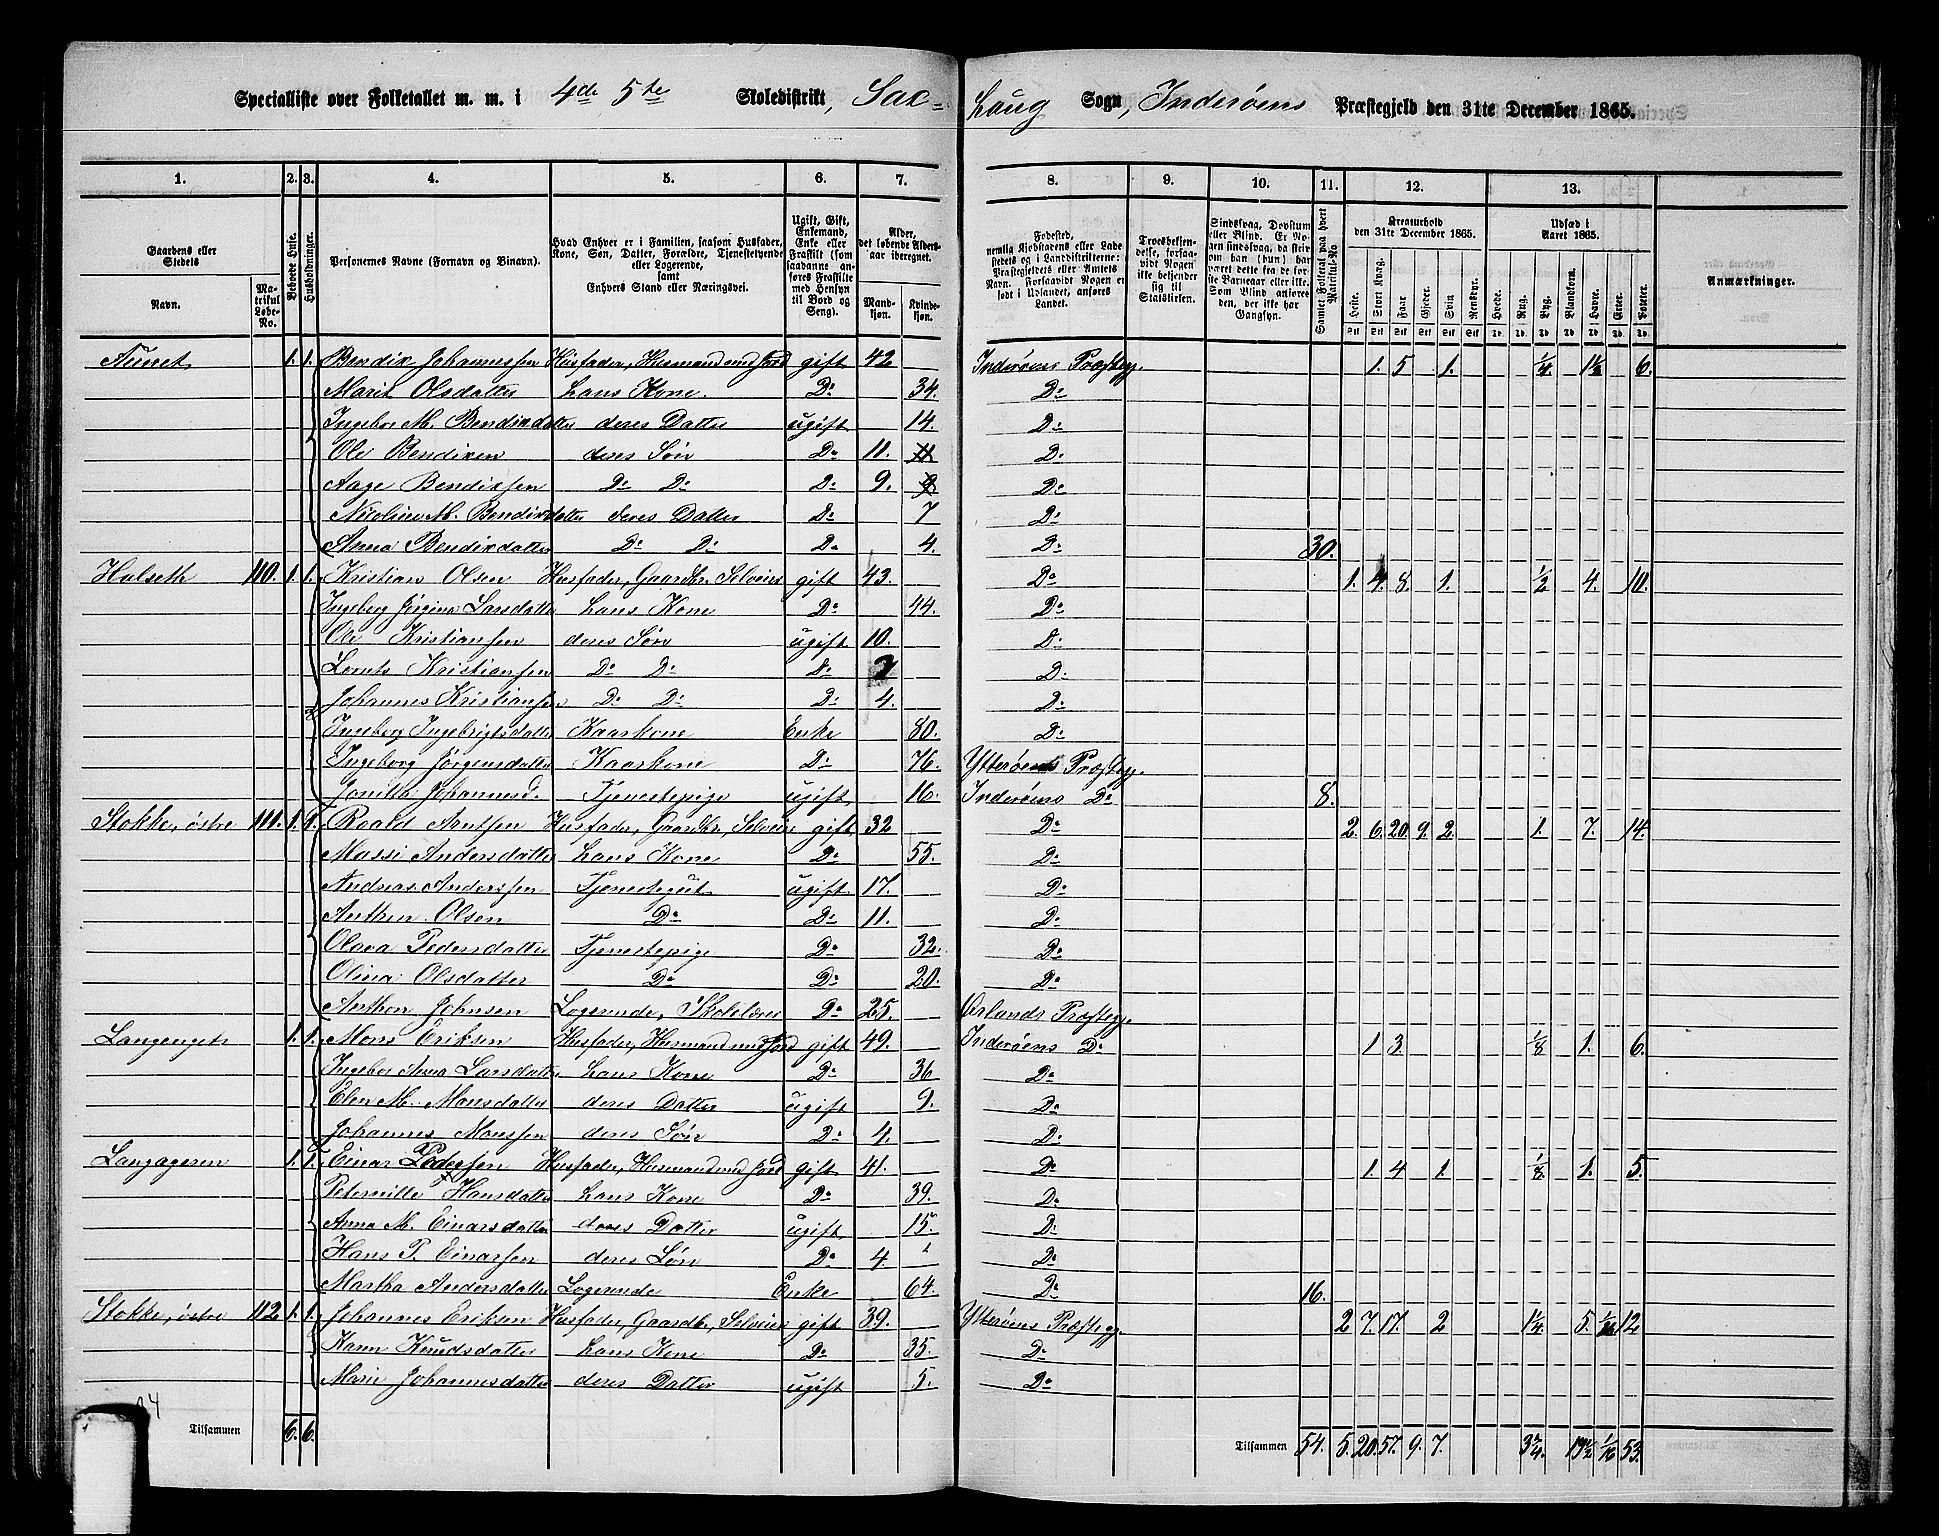 Specialliste over Folketallet m. m. i 4de 5te Skoledistrikt, Sax-
haug Sogn, Inderøens Præstegjeld den 31te December 1865.
1. 2. 3. 4. 5. 6. 7. 8. 9. 10. 11. 12. 13.
Gaardens eller Stedets
Navn.
Matrikul Løbe-No.
Beboede Huse.
Husholdninger.
Personernes Navne (Fornavn og Binavn).
Hvad Enhver er i Familien, saasom Husfader, Kone, Søn, Datter, Forældre, Tjenestetyende eller Logerende, samt Enhvers Stand eller Næringsvei.
Ugift, Gift, Enkemand, Enke eller Fraskilt (som saadanne anføres Fraskilte med Hensyn til Bord og Seng).
Alder, det løbende Aldersaar iberegnet.
Mandkjøn.
Kvindekjøn.
Fødested, nemlig Kjøbstadens eller Ladestedets eller i Landdistrikterne: Præstegjeldets eller Amtets Navn. Forsaavidt Nogen er født i Udlandet, anføres Landet.
Troesbekjendelse, forsaavidt Nogen ikke bekjender sig til Statskirken.
Sindssvag, Døvstum eller Blind. Er Nogen sindssvag, da skrives om han (hun) har været dette fra de første Barneaar eller ikke. Som Blind anføres der, der ikke har Gangsyn.
Samlet Folketal paa hvert Matrikul-No.
Kreaturhold den 31te December 1865.
Heste. Stort Kvæg. Faar. Gjeder. Svin. Rensdyr.
Udsæd i Aaret 1865.
Hvede. Rug. Byg. Blandkorn. Havre. Erter. Poteter.
Anmærkninger.
Aunet 1. 1. Bendix Johannessen Husfader, Husmand med Jord gift 42 Inderøens Præsteg. 1. 5 1. 1/4 1 1/2 6.
Marit Olsdatter hans Kone. Do 34. Do
Ingebor M. Bendixdatter deres Datter ugift 14. Do
Ole Bendixen deres Søn Do 11. 11 Do
Aage Bendixsen Do Do Do 9. 9 Do
Nicoline M. Bendixdatter deres Datter Do 7 Do
Anna Bendixdatter Do Do Do 4. Do 30.
Halseth 110. 1. 1. Kristian Olsen Husfader, Gaardbr. Selveier gift 43. Do 1. 4. 8. 1. 1/2 4. 10.
Ingeborg Jørgina Larsdatter hans Kone Do 44. Do
Ole Kristiansen deres Søn ugift 10. Do
Lornts Kristiansen Do Do Do 7 Do
Johannes Kristiansen Do Do Do 4. Do
Ingeborg Ingebrigtsdatter Kaarkone Enke 80. Do
Ingeborg Jørgensdatter Kaarkone Do 76. Ytterøens Præsteg.
Jonetta Johannesd. Tjenestepige ugift 16. Inderøens Do 8.
Stokke, østre 111. 1. 1. Roald Arntsen Husfader, Gaardbr, Selveier gift 32 Do 2. 6. 20. 9. 2. 1. 7. 14.
Massi Andersdatter hans Kone Do 55. Do
Andreas Anderssen Tjenestegut ugift 17. Do
Anthon Olsen Do Do 11. Do
Olava Pedersdatter Tjenestepige Do 32. Do
Olina Olsdatter Do Do 20. Do
Anthon Johnsen Logerende, Skolelærer Do 25. Ørlands Præsteg.
Langenget 1. 1. Mons Eriksen Husfader, Husmand med Jord gift 49. Inderøens Do 1 3. 1/8 1. 6.
Ingebor Anna Larsdatter hans Kone Do 36 Do
Elen M. Monsdatter deres Datter ugift 9. Do
Johannes Monssen deres Søn Do 4. Do
Langageren 1. 1. Einar Pedersen Husfader, Husmand med Jord gift 41. Do 1 4 1. 1/8 1. 5.
Peternille Hansdatter hans Kone Do 39. Do
Anna M. Einarsdatter deres Datter ugift 15. Do
Hans P. Einarsen deres Søn Do 4 Do
Martha Andersdatter Logerende Enke 64. Do 16.
Stokke, østre 112 1. 1. Johannes Eriksen Husfader, Gaardbr, Selveier gift 39. Ytterøens Præsteg. 2 7. 17. 2 1 1/4 5. 1/16 12
Karen Knudsdatter hans Kone Do 35. Do
Marie Johannesdatter deres Datter ugift 5. Do
Tilsammen 6. 6. Tilsammen 54. 5. 20. 57. 9. 7. 3 3/4. 19 1/2 1/16 53.